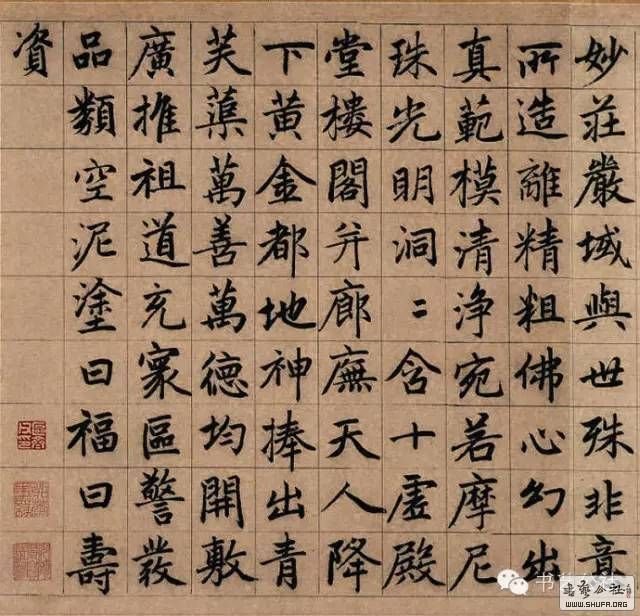 妙莊嚴域與世殊非意
所造離精粗佛心幻出
真範模清淨宛若摩尼
珠光明洞〻含十虛殿
堂樓閣并廊廡天人降
下黃金都地神捧出青
芙蕖萬善萬德均開敷
廣推祖道充寰區警發
品類空泥塗曰福曰壽
資
www.SHUFA.ORG